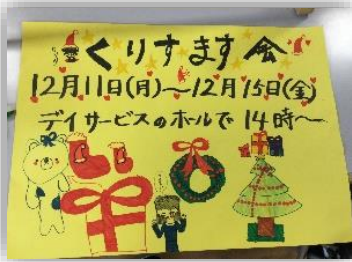 くりすます会
12月11日(月)～12月15日(金)
デイサービスのホールで 14時～